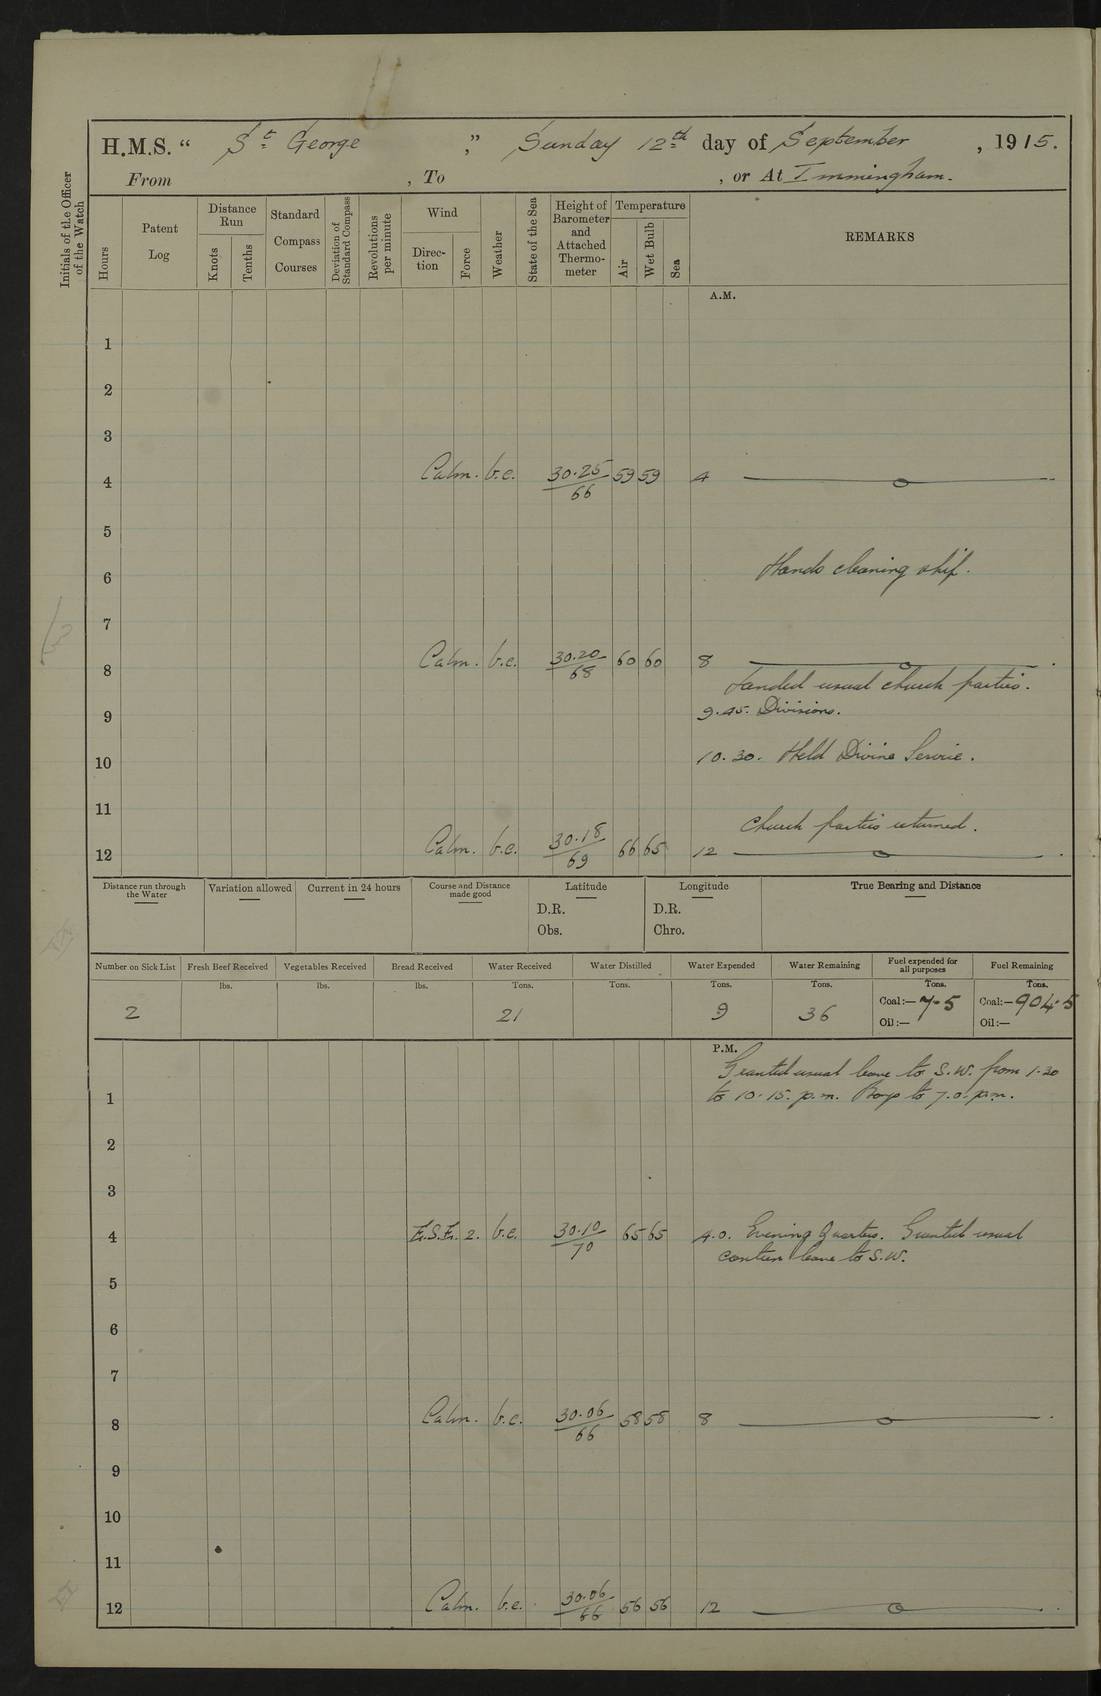 H.M.S. “ St. George ,” Sunday 12th day of September , 1915.
From , To , or At Immingham.
Initials of the Officer of the Watch
Hours
Patent Log
Distance Run
Knots
Tenths
Standard Compass Courses
Deviation of Standard Compass
Revolutions per minute
Wind
Direction
Force
Weather
State of the Sea
Height of Barometer and Attached Thermometer
Temperature
Air
Wet Bulb
Sea
REMARKS
A.M.
1
2
3
4 Calm. b.c. 30.25/66 59 59 4
5
6 Hands cleaning ship.
7
8 Calm. b.c. 30.20/68 60 60 8
Landed usual church parties.
9 9.45. Divisions.
10 10.30. Held Divine Service.
11
Church parties returned.
12 Calm. b.c. 30.18/69 66 65 12
Distance run through the Water
Variation allowed
Current in 24 hours
Course and Distance made good
Latitude
D.R.
Obs.
Longitude
D.R.
Chro.
True Bearing and Distance
Number on Sick List
2
Fresh Beef Received
lbs.
Vegetables Received
lbs.
Bread Received
lbs.
Water Received
Tons.
21
Water Distilled
Tons.
Water Expended
Tons.
9
Water Remaining
Tons.
36
Fuel expended for all purposes
Tons.
Coal:— 7.5
Oil:—
Fuel Remaining
Tons.
Coal:— 904.5
Oil:—
P.M.
Granted usual leave to S.W. from 1.30
1 to 10.15. p.m. Boys to 7.0. p.m.
2
3
4 E.S.E. 2. b.c. 30.10/70 65 65 4.0. Evening Quarters. Granted usual
canteen leave to S.W.
5
6
7
8 Calm. b.c. 30.06/66 58 58 8
9
10
11
12 Calm. b.c. 30.06/66 56 56 12